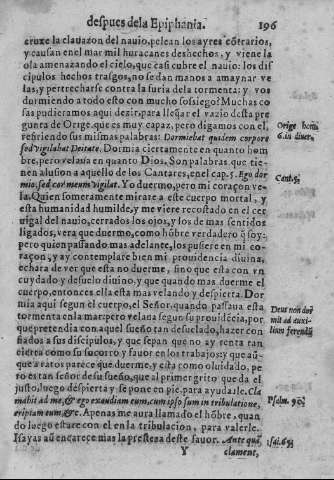 despues dela Epiphania. 196
cruxe la clauazon del nauio, pelean los ayres cõtrarios,
y causan enel mar mil huracanes deshechos, y viene la
ola amenazando el cielo, que casi cubre el nauio: los dis
cipulos hechos trasgos, no se dan manos a amaynar ve
las, y pertrecharse contra la furia dela tormenta: y vos
durmiendo a todo esto con mucho sossiego? Muchas co
sas pudieramos aqui dezir, para llenar el vazio desta pre
gunta de Orige, que es muy capaz, pero digamos con el,
refiriendo sus mismas palabras: Dormiebat quidem corpore
sed vigilabat Deitate. Dormia ciertamente en quanto hom
bre, pero velaua en quanto Dios. Son palabras que tie-
nen alusion a aquello de los Cantares, enel cap. 5. Ego dor
mio, sed cor meum vigilat. Yo duermo, pero mi coraçon ve-
la. Quien someramente mirare a este cuerpo mortal, y
esta humanidad humilde, y me viere recostado en el cer
uigal del nauio, cerrados los ojos, y los demas sentidos
ligados, vera que duermo, como hõbre verdadero q̃ soy:
pero quien passando mas adelante, los pusiere en mi co-
raçon, y ay contemplare bien mi prouidencia diuina,
echara de ver que esta no duerme, sino que esta con vn
cuydado y desuelo diuino, y que quando mas duerme el
cuerpo, entonces ella esta mas velando y despierta. Dor
mia aqui segun el cuerpo, el Señor, quando passaua esta
tormenta enla mar: pero velaua segun su prouidẽcia, por
que pretendia con aquel sueño tan desuelado, hazer con
fiados a sus discipulos, y que sepan que no ay renta tan
cierta como su socorro y fauor en los trabajos: y que aũ-
que a ratos parece que duerme, y esta como oluidado, pe
ro estan señor de su sueño, que al primer grito que da el
justo, luego despierta y se pone en pie, para ayudarle. Cla
mabit ad me, & ego exaudiam eum, cum ipso sum in tribulatione,
eripiam eum, &c. Apenas me aura llamado el hõbre, quan
do luego estare con el en la tribulacion, para valerle.
Isayas aũ encarece mas la presteza deste fauor. Ante quã
Y clament,
Orige homi
6. in diuer.
Cant. 5.
Deus non dor
mit ad auxi-
lium ferendũ
Psalm. 90.
Isai. 65.